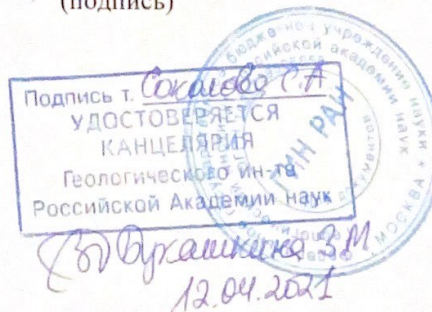 (подпись)
Подпись т. Соколова С.А
УДОСТОВЕРЯЕТСЯ
КАНЦЕЛЯРИЯ
Геологического ин-та
Российской Академии наук
Букашкина З.М
12.04.2021
бюджетное учреждение науки
Российской академии наук
ГИН РАН
МОСКВА